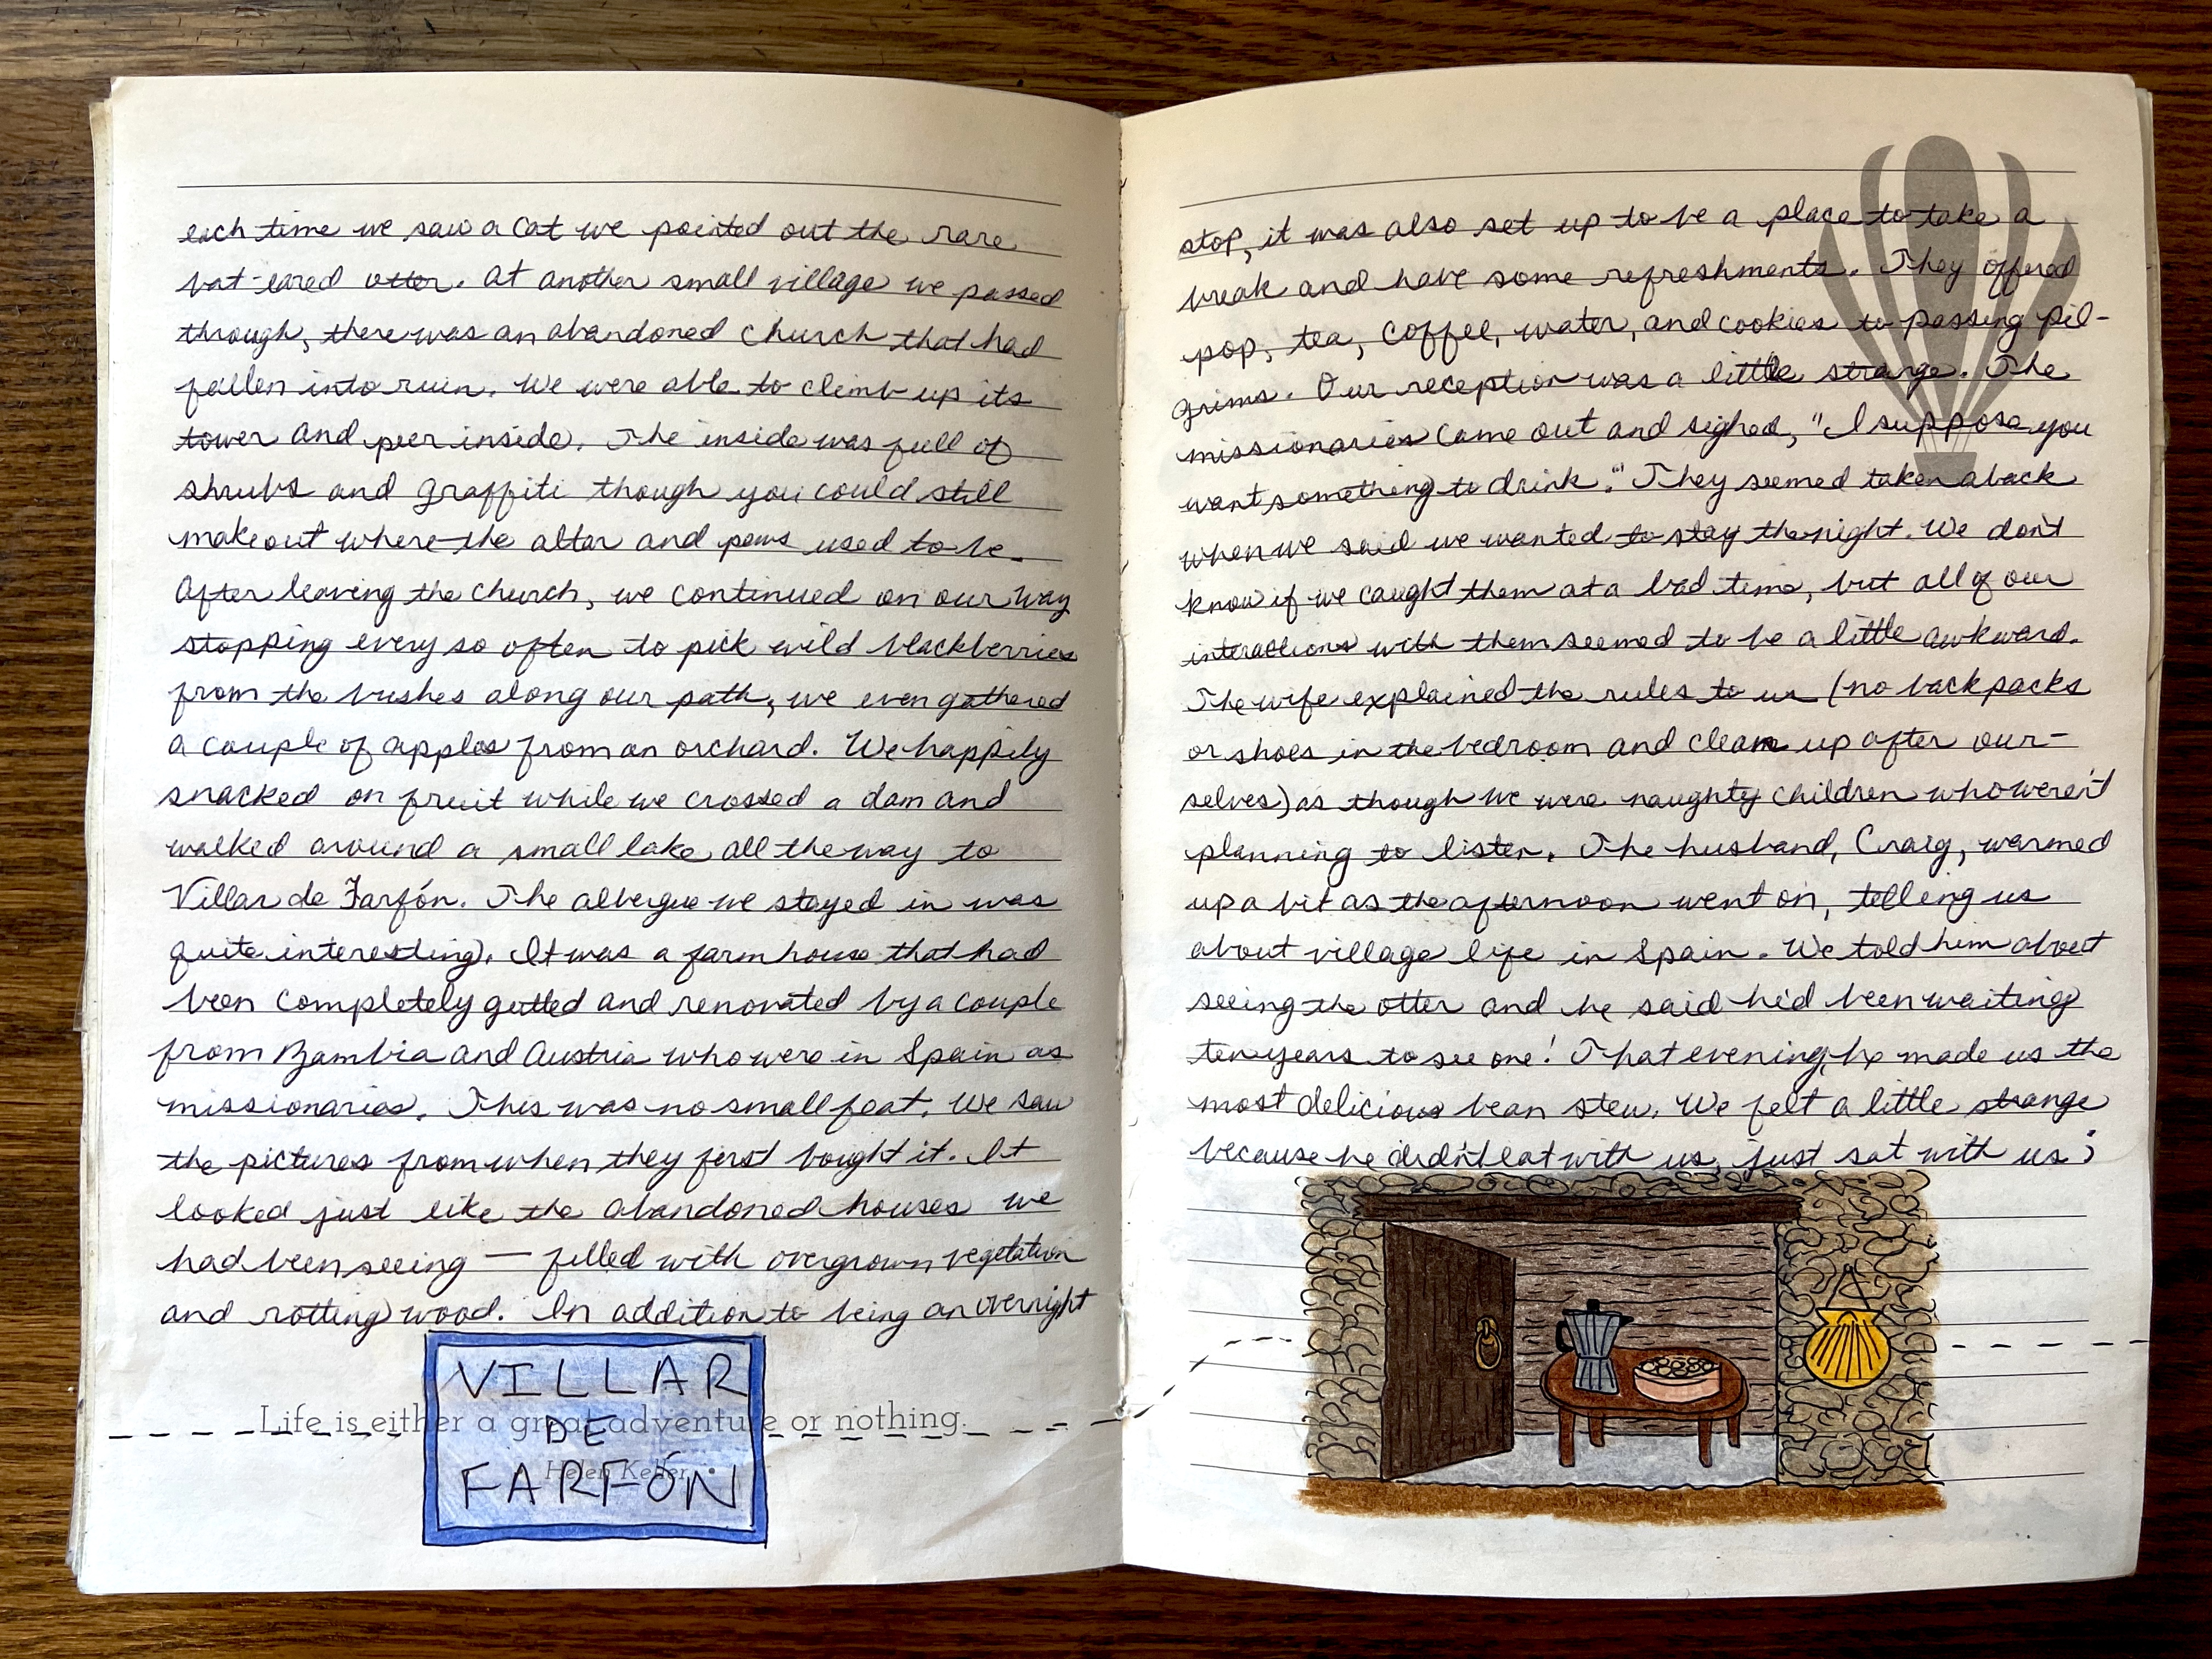 each time we saw a cat we pointed out the rare
bat-eared otter. At another small village we passed
through, there was an abandoned church that had
fallen into ruin. We were able to climb up its
tower and peer inside. The inside was full of
shrubs and graffiti though you could still
make out where the altar and pews used to be.
After leaving the church, we continued on our way
stopping every so often to pick wild blackberries
from the bushes along our path, we even gathered
a couple of apples from an orchard. We happily
snacked on fruit while we crossed a dam and
walked around a small lake all the way to
Villar de Farfón. The albergue we stayed in was
quite interesting. It was a farm house that had
been completely gutted and renovated by a couple
from Zambia and Austria who were in Spain as
missionaries. This was no small feat. We saw
the pictures from when they first bought it. It
looked just like the abandoned houses we
had been seeing — filled with overgrown vegetation
and rotting wood. In addition to being an overnight
VILLAR
DE
FARFÓN
Life is either a great adventure or nothing.
Helen Keller
stop, it was also set up to be a place to take a
break and have some refreshments. They offered
pop, tea, coffee, water, and cookies to passing pil-
grims. Our reception was a little strange. The
missionaries came out and sighed, "I suppose you
want something to drink." They seemed taken aback
when we said we wanted to stay the night. We don't
know if we caught them at a bad time, but all of our
interactions with them seemed to be a little awkward.
The wife explained the rules to us (no backpacks
or shoes in the bedroom and clean up after our-
selves) as though we were naughty children who weren't
planning to listen. The husband, Craig, warmed
up a bit as the afternoon went on, telling us
about village life in Spain. We told him about
seeing the otter and he said he'd been waiting
ten years to see one! That evening, he made us the
most delicious bean stew. We felt a little strange
because he didn't eat with us, just sat with us;